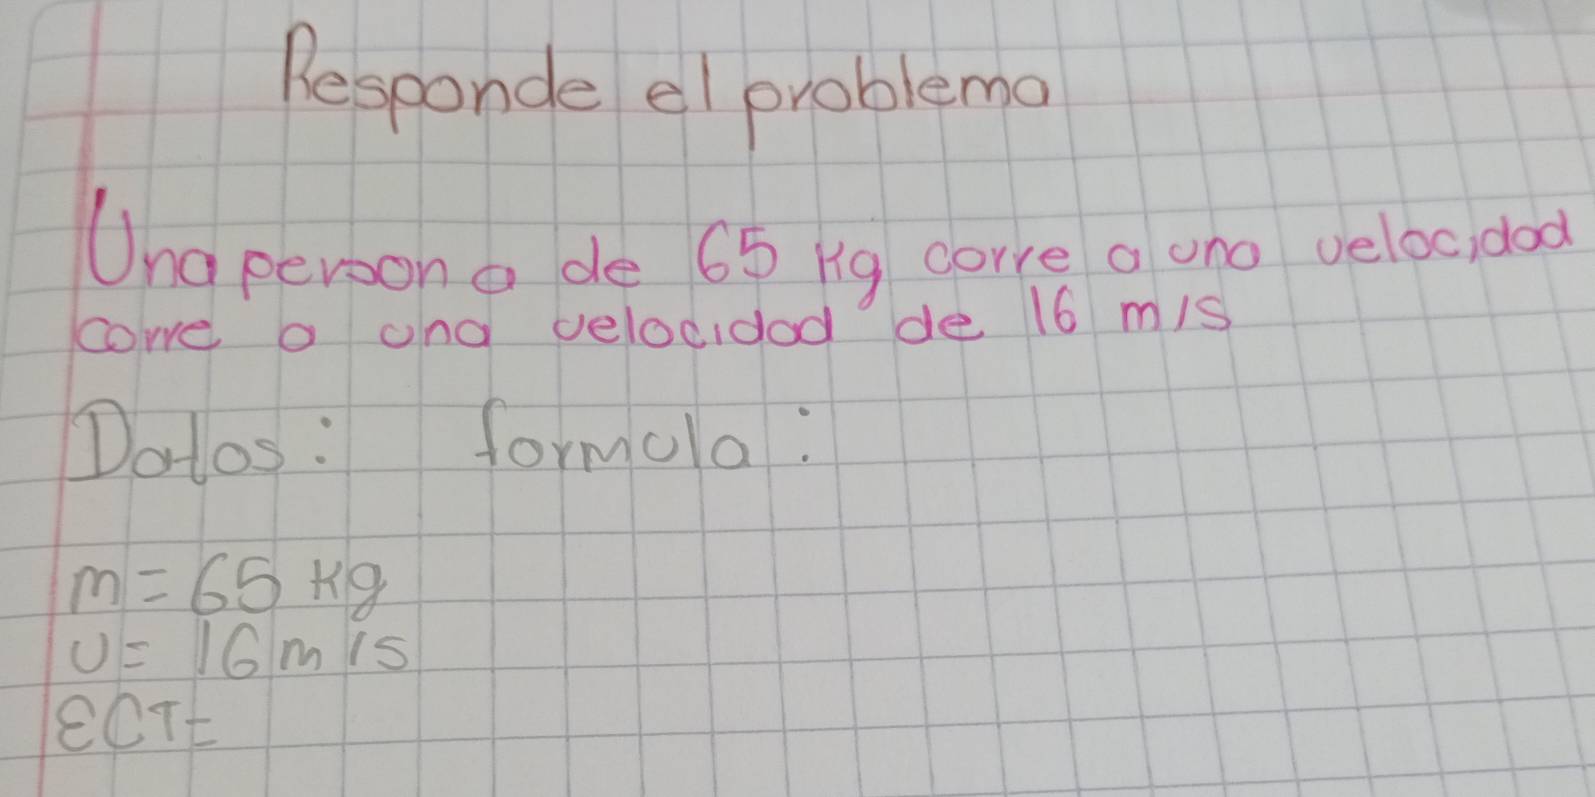 Responde el problema
Una persona de 65 Kg corre a una velocidad
corre a una velocidad de 16 m/s
Datos: formula:
m = 65 Kg
v = 16 m/s
ECT=